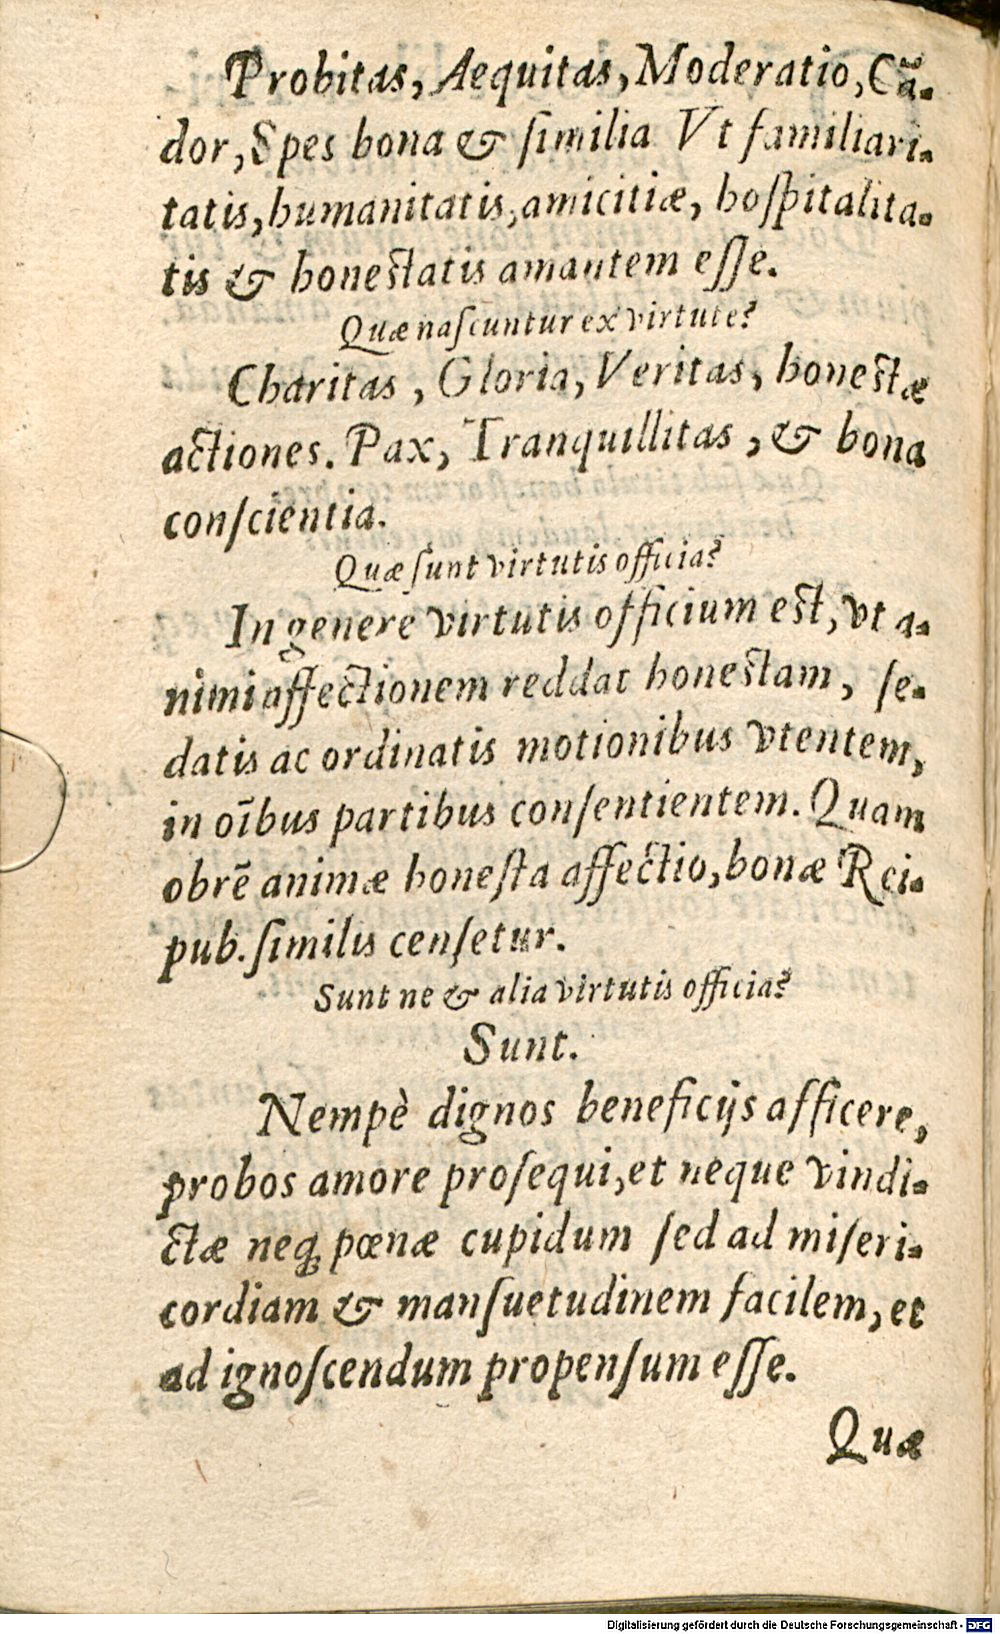 Probitas, Aequitas, Moderatio, Cã-
dor, Spes bona & ſimilia Vt familiari-
tatis, humanitatis, amicitiæ, hoſpitalita-
tis & honeſtatis amantem eſſe.
Quæ naſcuntur ex virtute?
Charitas, Gloria, Veritas, honeſtæ
actiones. Pax, Tranquillitas, & bona
conſcientia.
Quæ ſunt virtutis officia?
In genere virtutis officium eſt, vt a-
nimi affectionem reddat honeſtam, ſe-
datis ac ordinatis motionibus vtentem,
in oĩbus partibus conſentientem. Quam
obrẽ animæ honeſta affectio, bonæ Rei-
pub. ſimilis cenſetur.
Sunt ne & alia virtutis officia?
Sunt.
Nempè dignos beneficijs afficere,
probos amore proſequi, et neque vindi-
ctæ neq́; pœnæ cupidum ſed ad miſeri-
cordiam & manſuetudinem facilem, et
ad ignoſcendum propenſum eſſe.
Quæ
Digitalisierung gefördert durch die Deutsche Forschungsgemeinschaft - DFG